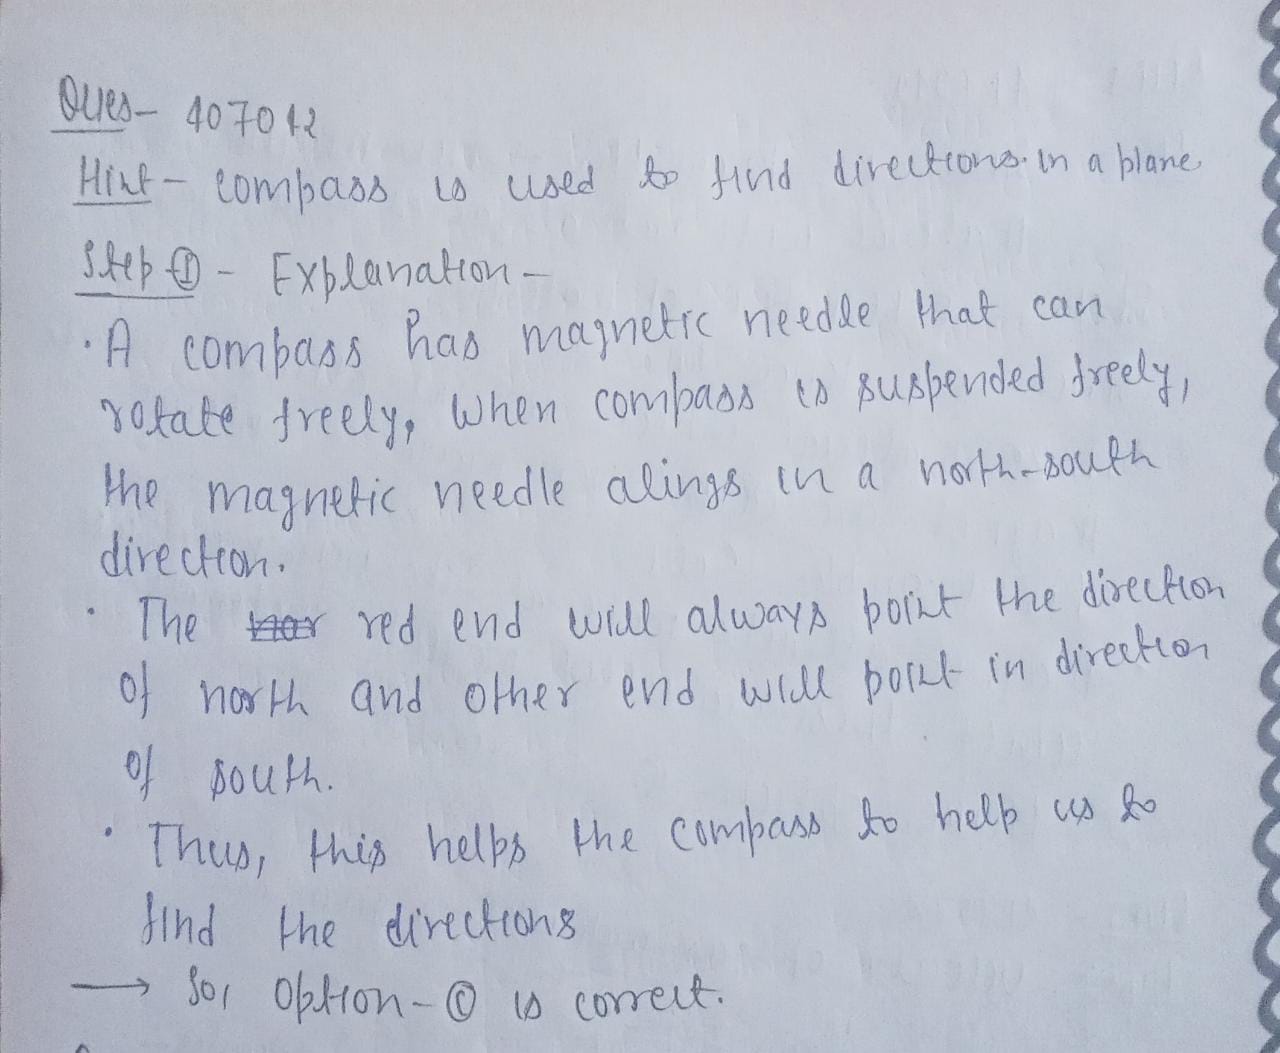 Ques- 407042
Hint- compass is used to find directions in a plane
Step ① - Explanation -
· A compass has magnetic needle that can
rotate freely, when compass is suspended freely,
the magnetic needle alings in a north-south
direction.
· The red end will always point the direction
of north and other end will point in direction
of south.
· Thus, this helps the compass to help us to
find the directions
→ So, Option-© is correct.